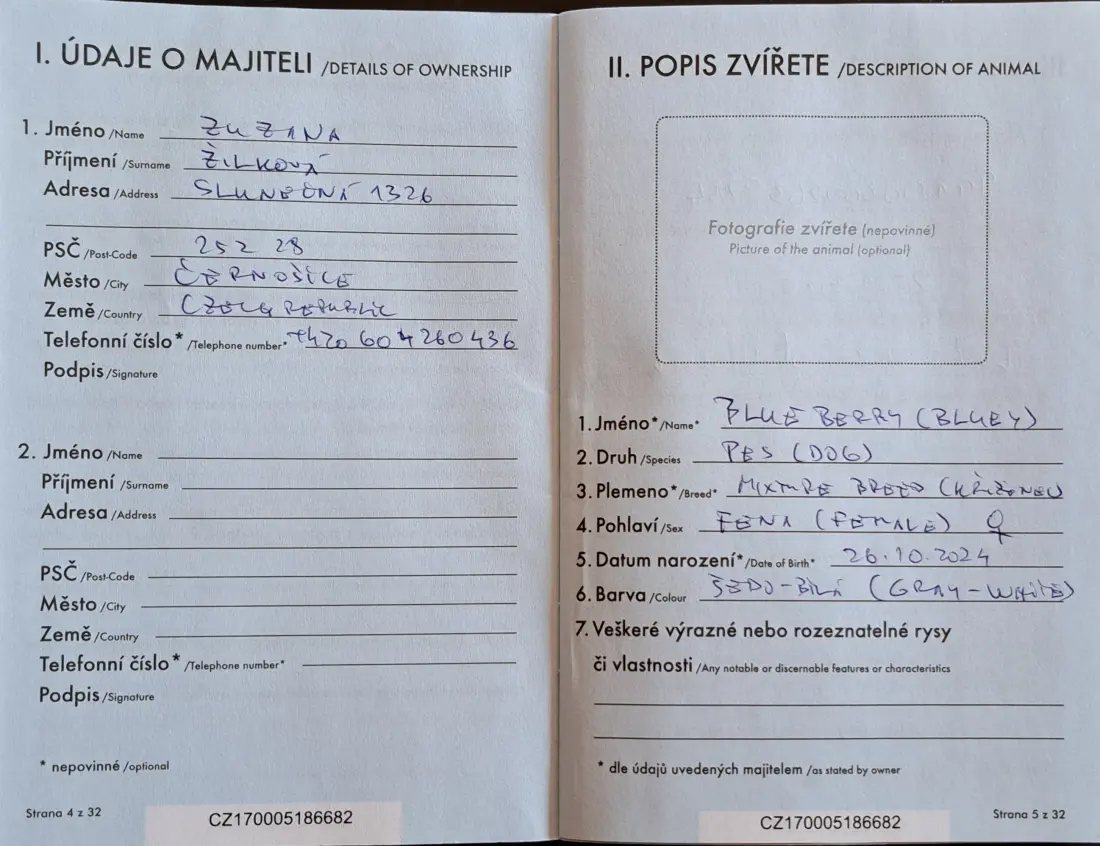 I. ÚDAJE O MAJITELI /DETAILS OF OWNERSHIP
1. Jméno /Name ZUZANA
Příjmení /Surname ŽILKOVÁ
Adresa /Address SLUNEČNÍ 1326
PSČ /Post-Code 252 28
Město /City ČERNOŠICE
Země /Country CZECH REPUBLIC
Telefonní číslo* /Telephone number* +420 604 260 436
Podpis /Signature
2. Jméno /Name
Příjmení /Surname
Adresa /Address
PSČ /Post-Code
Město /City
Země /Country
Telefonní číslo* /Telephone number*
Podpis /Signature
* nepovinné /optional
Strana 4 z 32
CZ170005186682
II. POPIS ZVÍŘETE /DESCRIPTION OF ANIMAL
Fotografie zvířete (nepovinné)
Picture of the animal (optional)
1. Jméno* /Name* BLUE BERRY (BLUEY)
2. Druh /Species PES (DOG)
3. Plemeno* /Breed* MIXTURE BREED (KŘÍŽENEC)
4. Pohlaví /Sex FENA (FEMALE) ♀
5. Datum narození* /Date of Birth* 26.10.2024
6. Barva /Colour ŠEDO-BÍLÁ (GRAY-WHITE)
7. Veškeré výrazné nebo rozeznatelné rysy
či vlastnosti /Any notable or discernable features or characteristics
* dle údajů uvedených majitelem /as stated by owner
Strana 5 z 32
CZ170005186682